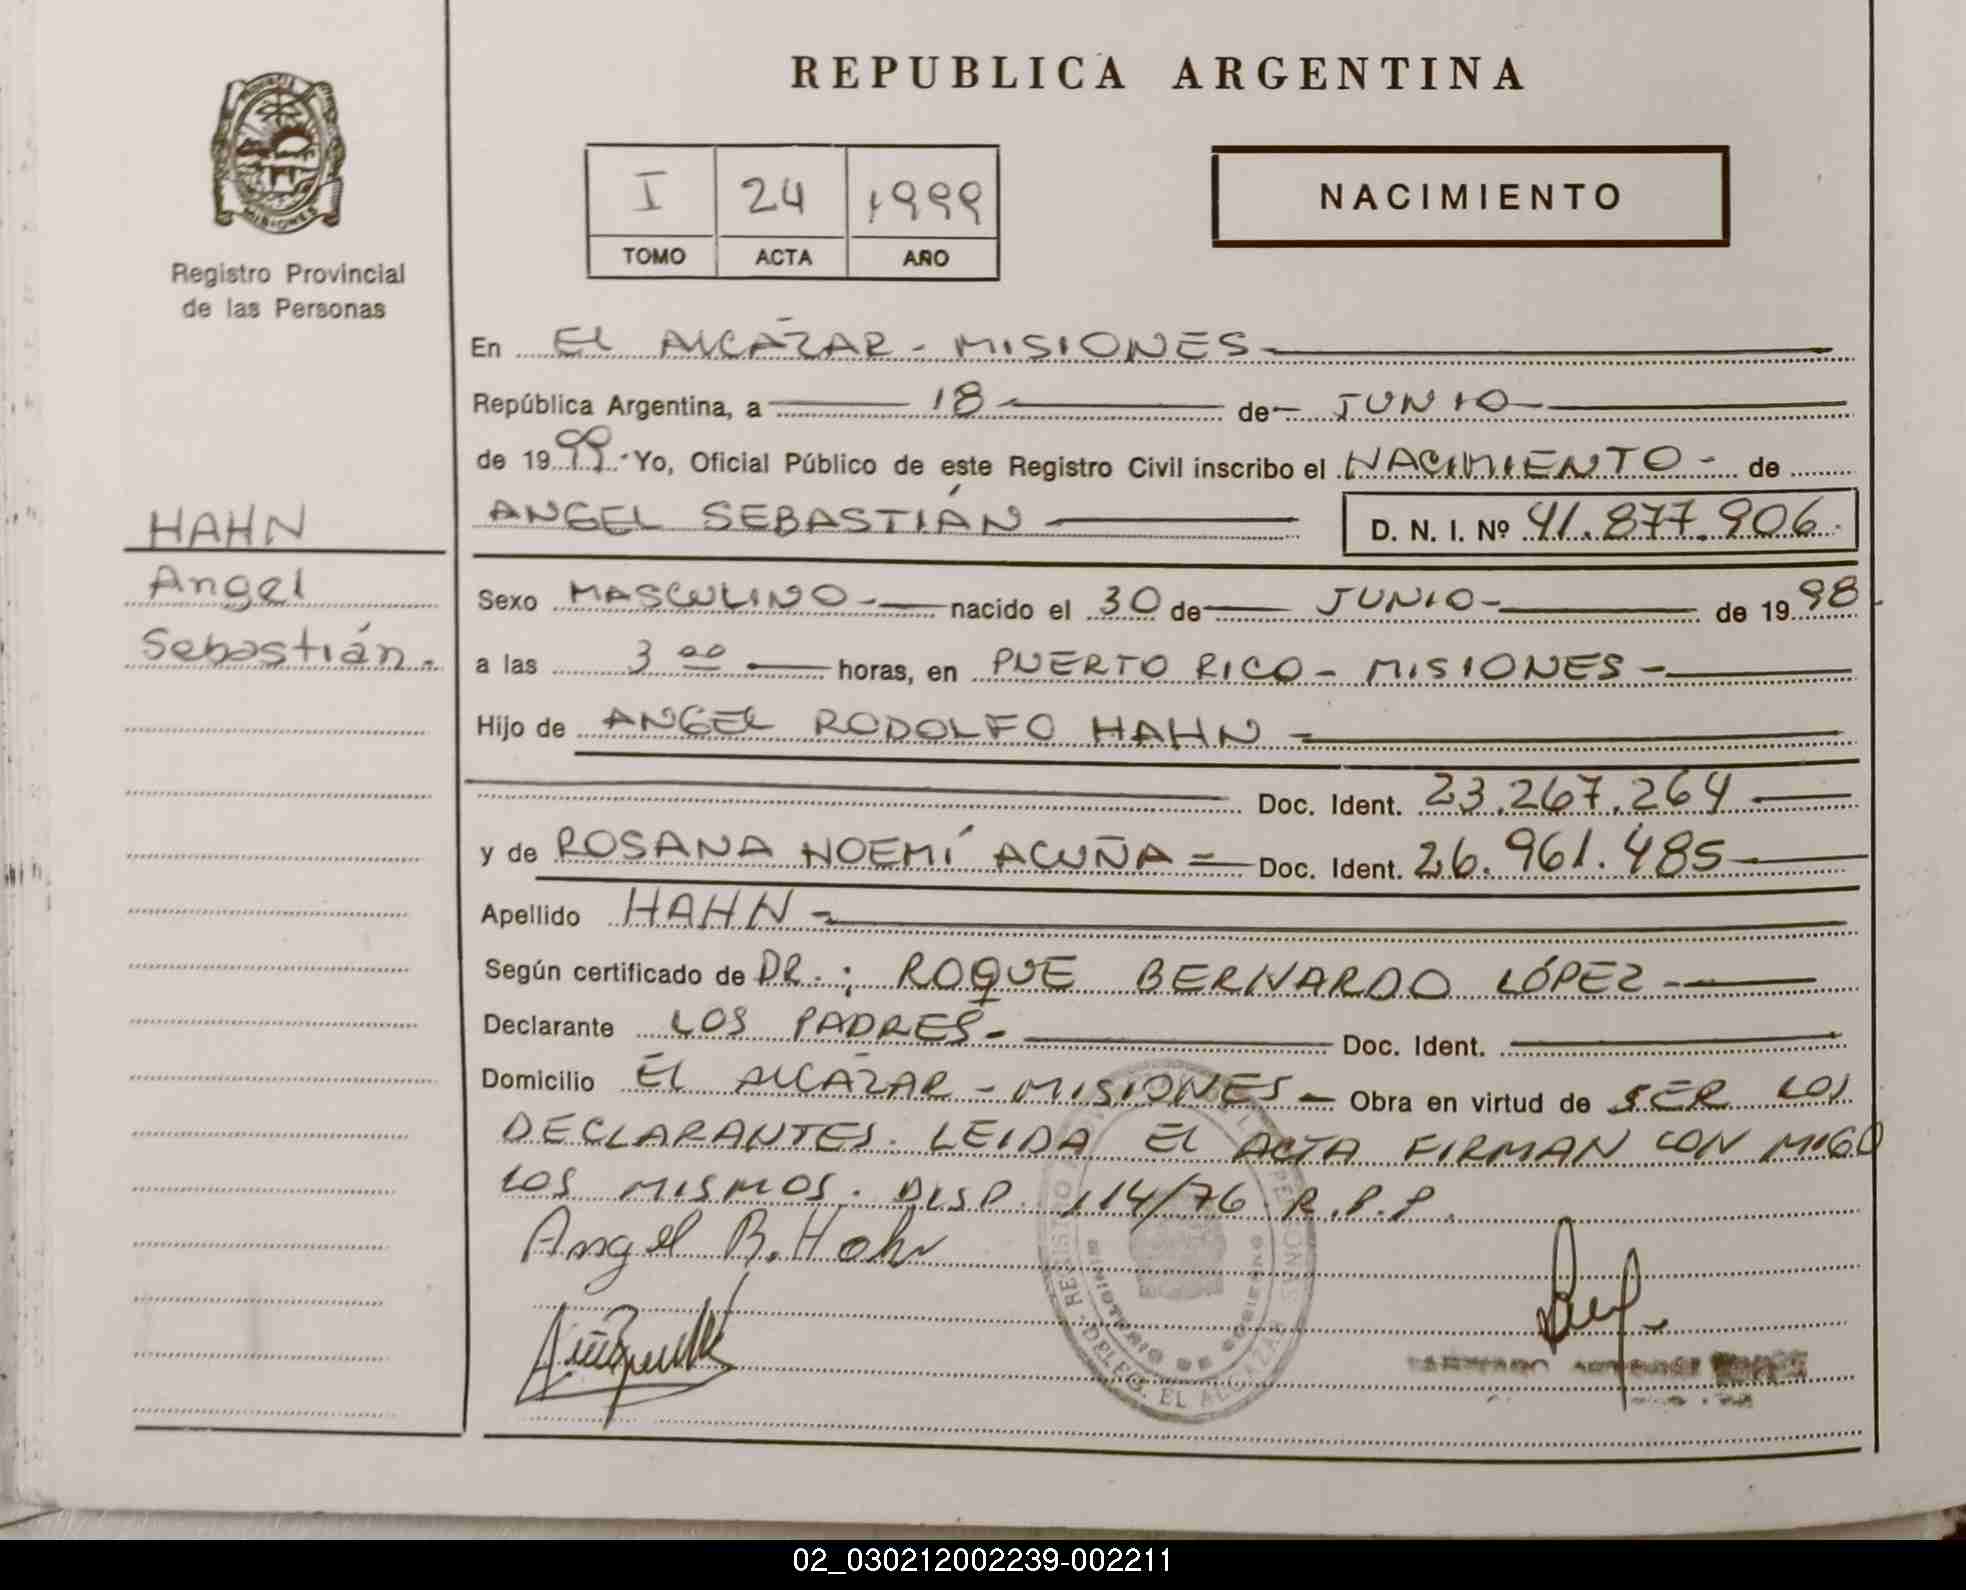 REPUBLICA ARGENTINA
MISIONES
Registro Provincial
de las Personas
I 24 1999
TOMO ACTA AÑO
NACIMIENTO
En EL ALCÁZAR - MISIONES
República Argentina, a 18 de JUNIO
de 1999 Yo, Oficial Público de este Registro Civil inscribo el NACIMIENTO - de
ANGEL SEBASTIÁN D. N. I. Nº 41.877.906
HAHN
Angel
Sebastián.
Sexo MASCULINO - nacido el 30 de JUNIO - de 1998
a las 3 00 horas, en PUERTO RICO - MISIONES -
Hijo de ANGEL RODOLFO HAHN -
Doc. Ident. 23.267.264
y de ROSANA NOEMÍ ACUÑA = Doc. Ident. 26.961.485
Apellido HAHN -
Según certificado de DR.: ROQUE BERNARDO LÓPEZ -
Declarante LOS PADRES - Doc. Ident.
Domicilio EL ALCÁZAR - MISIONES - Obra en virtud de SER LOS
DECLARANTES. LEIDA EL ACTA FIRMAN CON MIGO
LOS MISMOS. DISP. 114/76 R.P.P.
Angel R. Hahn
MINISTERIO DE GOBIERNO
DELEG. EL ALCAZAR
02_030212002239-002211